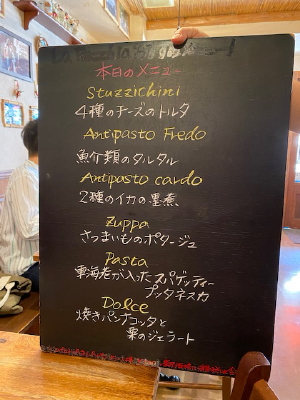 本日のメニュー
Stuzzichini
4種のチーズのトルタ
Antipasto Fredo
魚介類のタルタル
Antipasto cardo
2種のイカの墨煮
Zuppa
さつまいものポタージュ
Pasta
車海老が入ったスパゲッティー
プッタネスカ
Dolce
焼きパンナコッタと
栗のジェラート